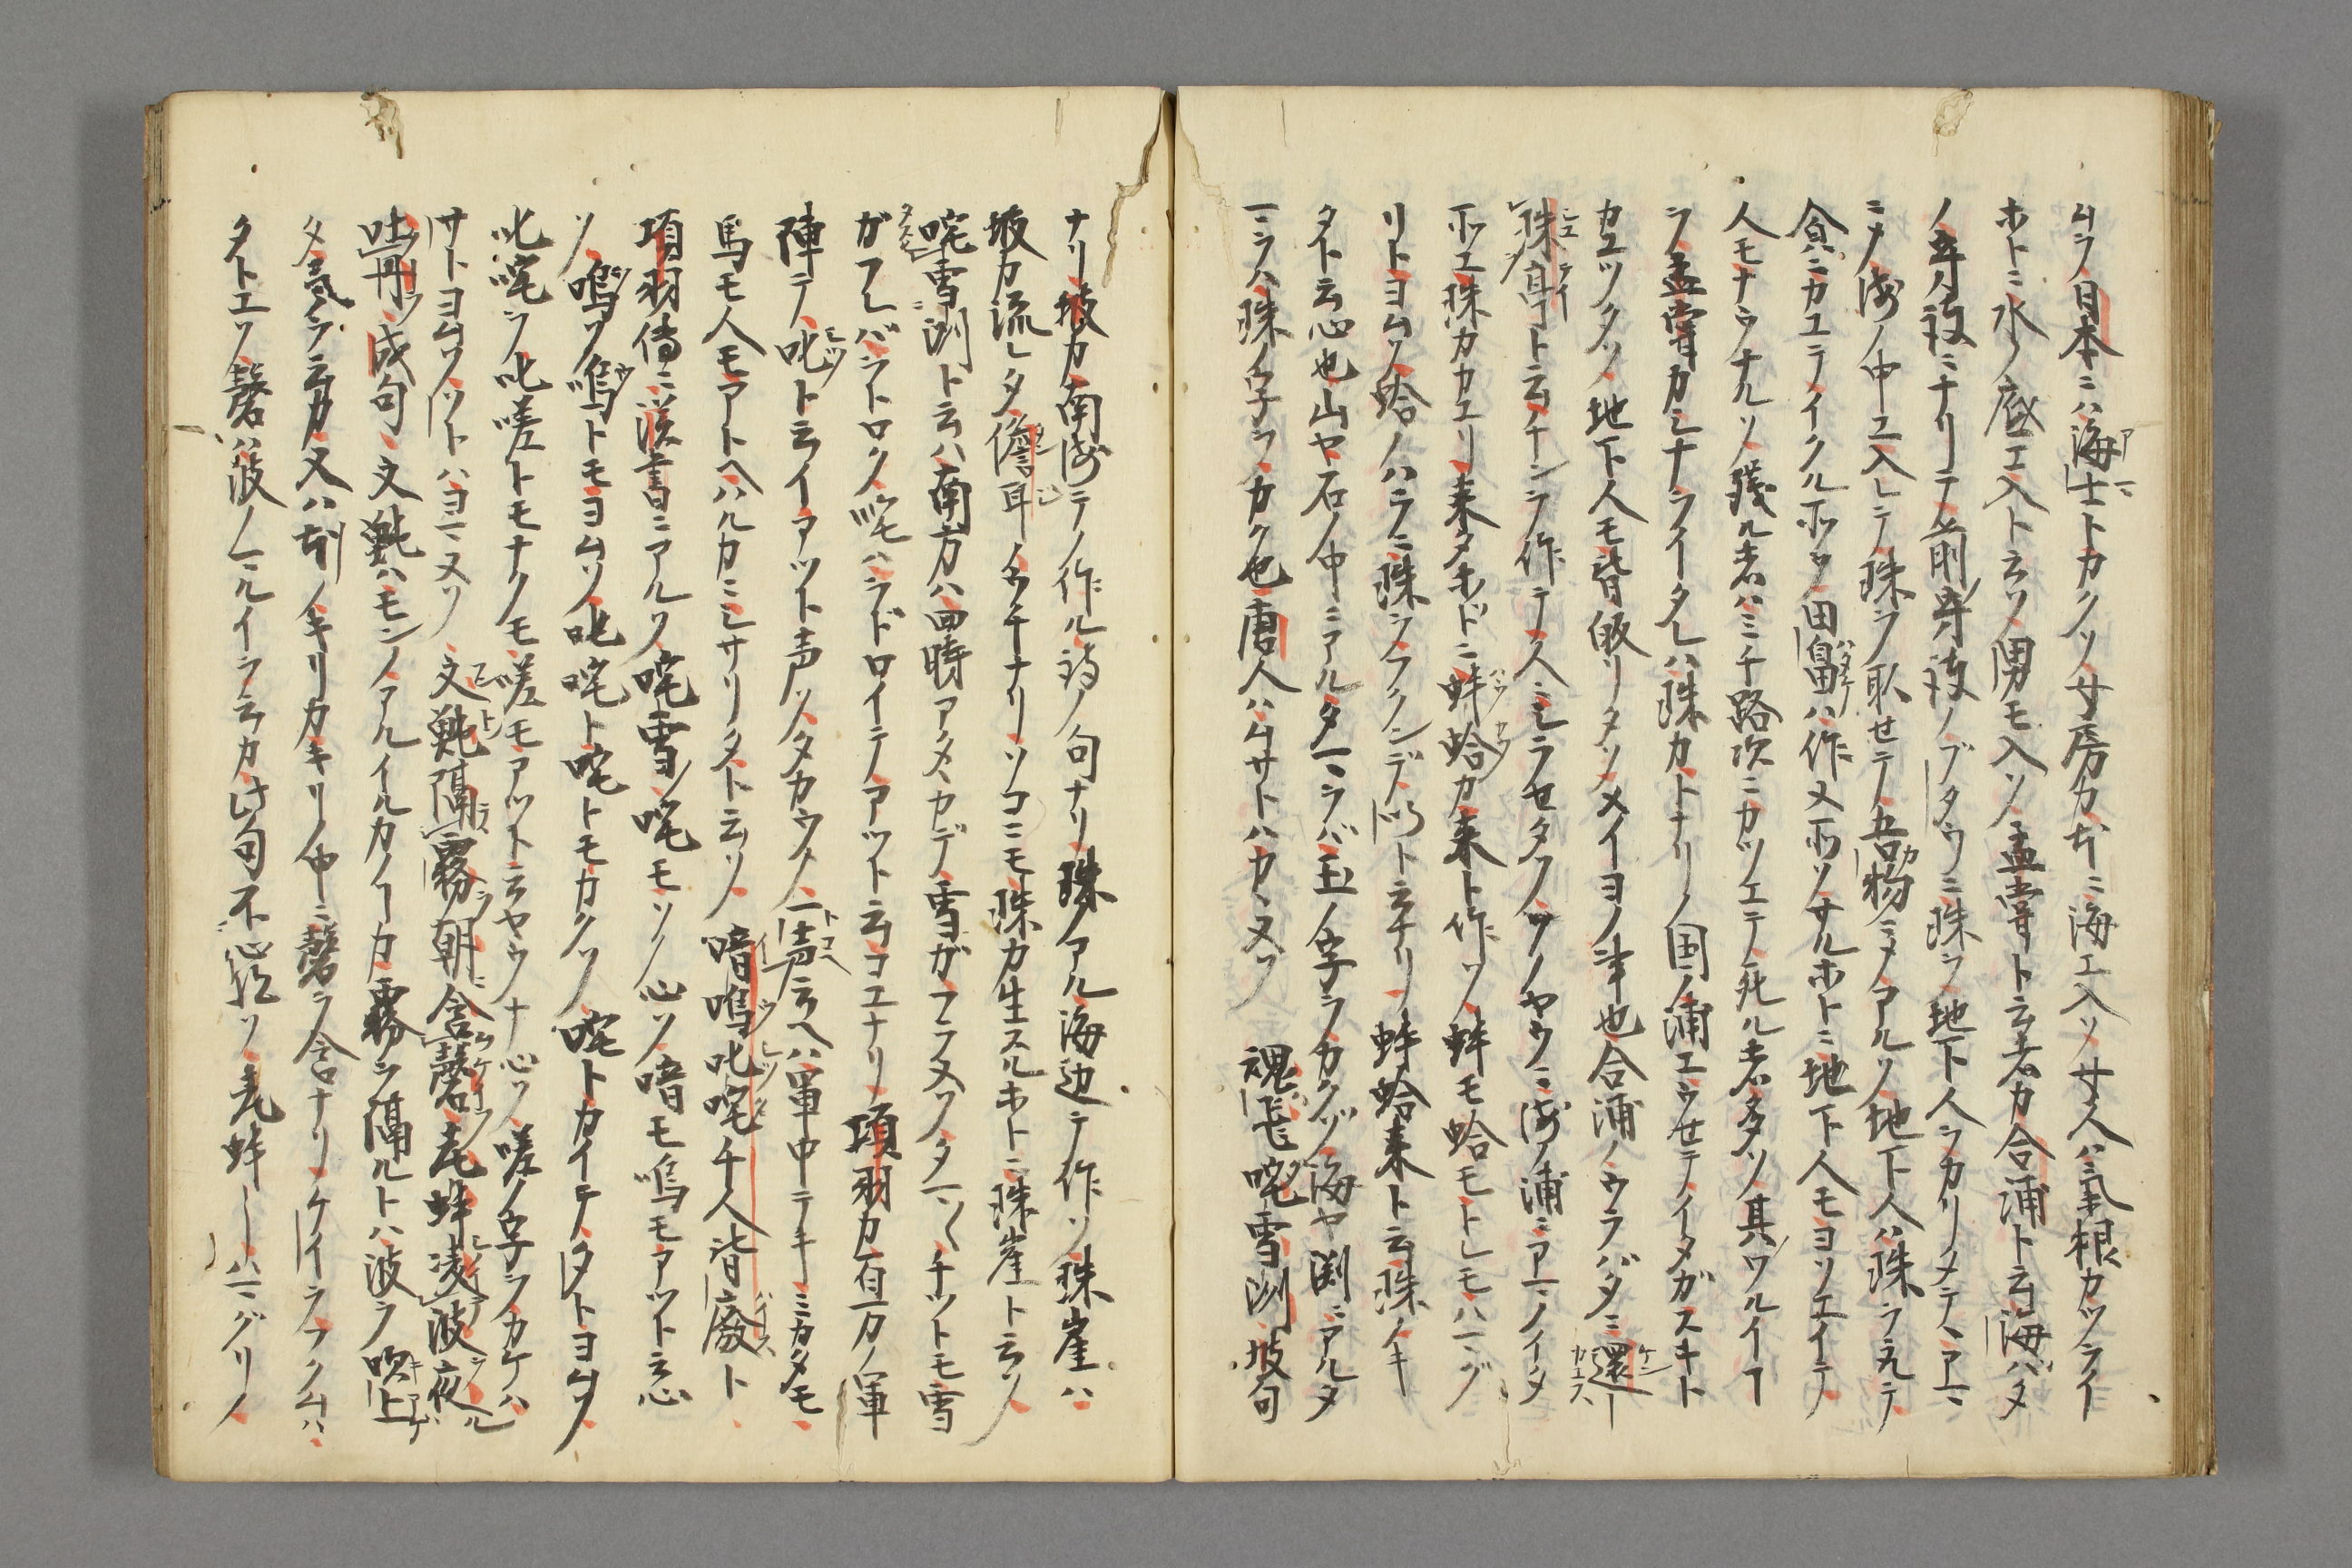 ムラノ日本ニハ海士トカクソ女房カヂニ海エ入ソ女人ハ気根カツライ
ホトニ水ノ底エ入ト云ソ男モ入ソ孟嘗ト云者カ合浦ト云海バタ
ノ守護ニナリテ前守護ノブタウニ珠ヲ地下人ヲカリメテアマ
ニソ海ノ中エ入レテ珠ヲ取セテ吾物ニメアルソ地下人ハ珠ヲ先テ
食ニカエテイクル所ソ田畠ハ作ヌ所ソサルホトニ地下人モヨソエイテ
人モナウナルソ残ル者ハミチ路次ニカツエテ死ル者多ソ其ワルイ丁
ヲ孟嘗カシナライタレハ珠カトナリノ国ノ浦エウセテイタガスキト
カエツタソ地下人モ皆皈リタソメイヨノ事也合浦ノウラバタニ還
珠亭ト云チンヲ作テ人ミシラセタソツノヤウニ海ノ浦ニアマノイタ
所エ珠カカエリ来タホドニ蚌蛤カ来ト作ソ蚌モ蛤モトレモハマグ
リトヨムソ蛤ノハラニ珠ヲフクンデ以ト云ナリ蚌蛤来ト云珠ノキ
タト云心也山ヤ石ノ中ニアルタマヲバ玉ノ字ヲカクゾ海ヤ渕ニアルタ
マヲハ珠ノ字ヲカク也唐人ハムサトハカヽヌソ 魂悵咤雪渕坡句
ナリ坡カ南海テノ作ル詩ノ句ナリ珠ノアル海辺テ作ソ珠崖ハ
坡カ流レタ儋耳ノウチナリソコニモ珠カ生スルホトニ珠崖ト云ソ
咤雪渕ト云ハ南方ハ四時アタヽカデ雪ガフラヌソタマ〱チツトモ雪
ガフレバヲトロク咤ハヲドロイテアツト云コエナリ項羽カ百万ノ軍
陣テ叱ト云イアツト声ツタカウノ一声云ヘハ軍中テキミカタモ
馬モ人モアトヘハルカニシサリタト云ソ 喑嗚叱咤千人皆廢ト
項羽傳ニ漢書ニアルソ咤雪ノ咤モソノ心ソ喑モ嗚モアツト云心
ソ嗚ソ嗚トモヨムソ叱咤ト咤トモカクソ咤トカイテタトヨムソ
叱咤ヲ叱嗟トモナクモ嗟モアツト云ヤウナ心ソ嗟ノ字ヲカケハ
サトヨムソツトハヨマヌソ 文魨隔霧朝含磬老蚌凌波夜
吐丹成句文魨ハモンノアルイルカノ丁カ霧ヲ隔ルトハ波ヲ吹上
タ気ヲ云カ又ハ朝ノキリカキリノ中ニ磬ヲ含ナリケイラフクムハ
タトエソ磬ハ波ノマルイヲ云カ此句不心得ソ老蚌ーハマグリノ